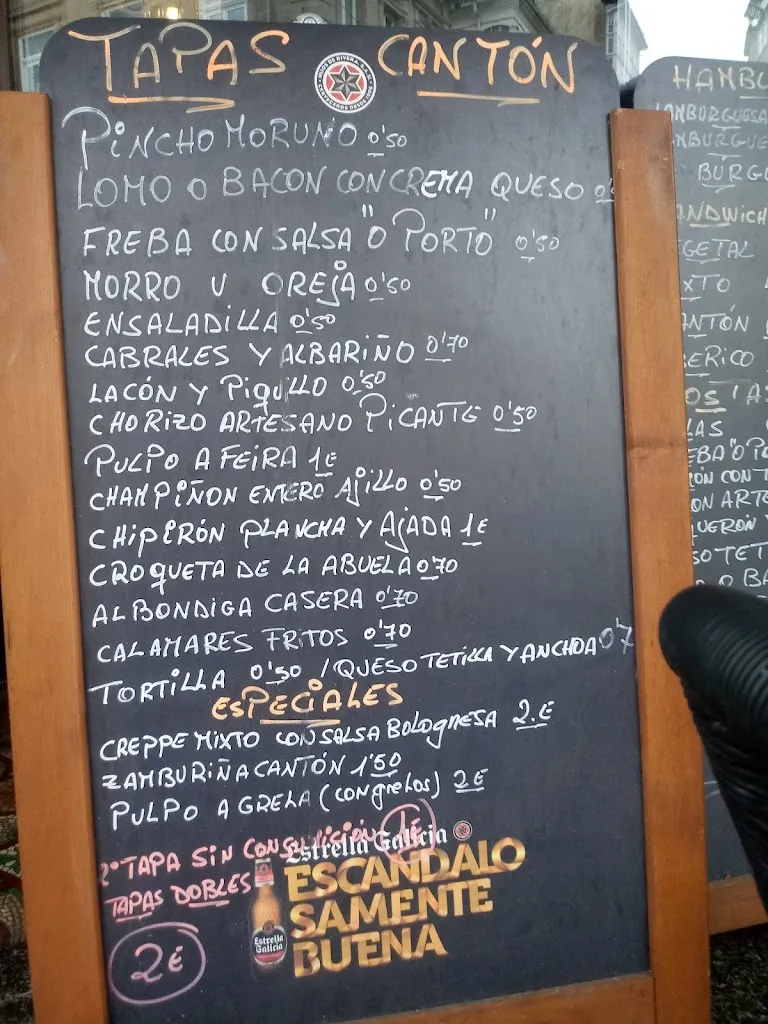 TAPAS CANTÓN
PINCHO MORUNO 0'50
LOMO O BACON CON CREMA QUESO
FREBA CON SALSA "O PORTO" 0'50
MORRO U OREJA 0'50
ENSALADILLA 0'50
CABRALES Y ALBARIÑO 0'70
LACÓN Y PIQUILLO 0'50
CHORIZO ARTESANO PICANTE 0'50
PULPO A FEIRA 1€
CHAMPIÑON ENTERO AJILLO 0'50
CHIPIRÓN PLANCHA Y AJADA 1€
CROQUETA DE LA ABUELA 0'70
ALBONDIGA CASERA 0'70
CALAMARES FRITOS 0'70
TORTILLA 0'50 / QUESO TETILLA Y ANCHOA 0'7
ESPECIALES
CREPPE MIXTO CON SALSA BOLOGNESA 2.€
ZAMBURIÑA CANTÓN 1'50
PULPO A GRELA (CON grelos) 2€
2ª TAPA SIN CONSUMICIÓN 1€
TAPAS DOBLES
2€
Estrella Galicia
ESCANDALO
SAMENTE
BUENA
Estrella Galicia
HAMBU
HAMBURGUESA
MBURGUE
BURGU
ANDWICH
EGETAL
XTO
ANTÓN
BERICO
OS
LAS
EBA "O PO
ÓN CON T
ON ARTE
QUERÓN Y
SO TET
O BA